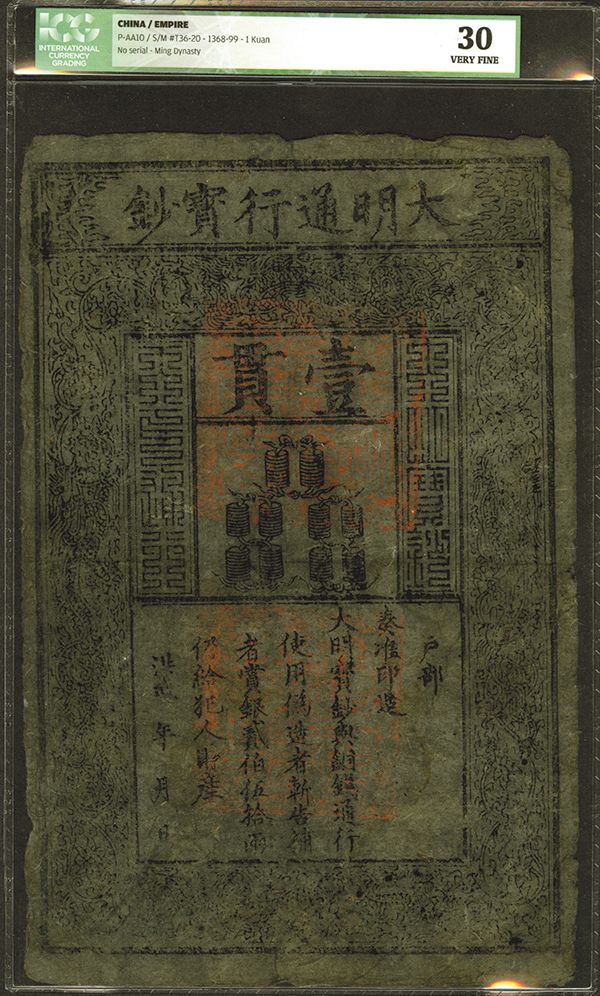 ICG
INTERNATIONAL
CURRENCY
GRADING
CHINA / EMPIRE
P-AA10 / S/M #T36-20 - 1368-99 - 1 Kuan
No serial - Ming Dynasty
30
VERY FINE
大明通行寳鈔
壹貫
戶部
奏准印造
大明寳鈔與銅錢通行
使用偽造者斬告捕
者賞銀貳伯伍拾兩
仍給犯人財產
洪武 年 月 日